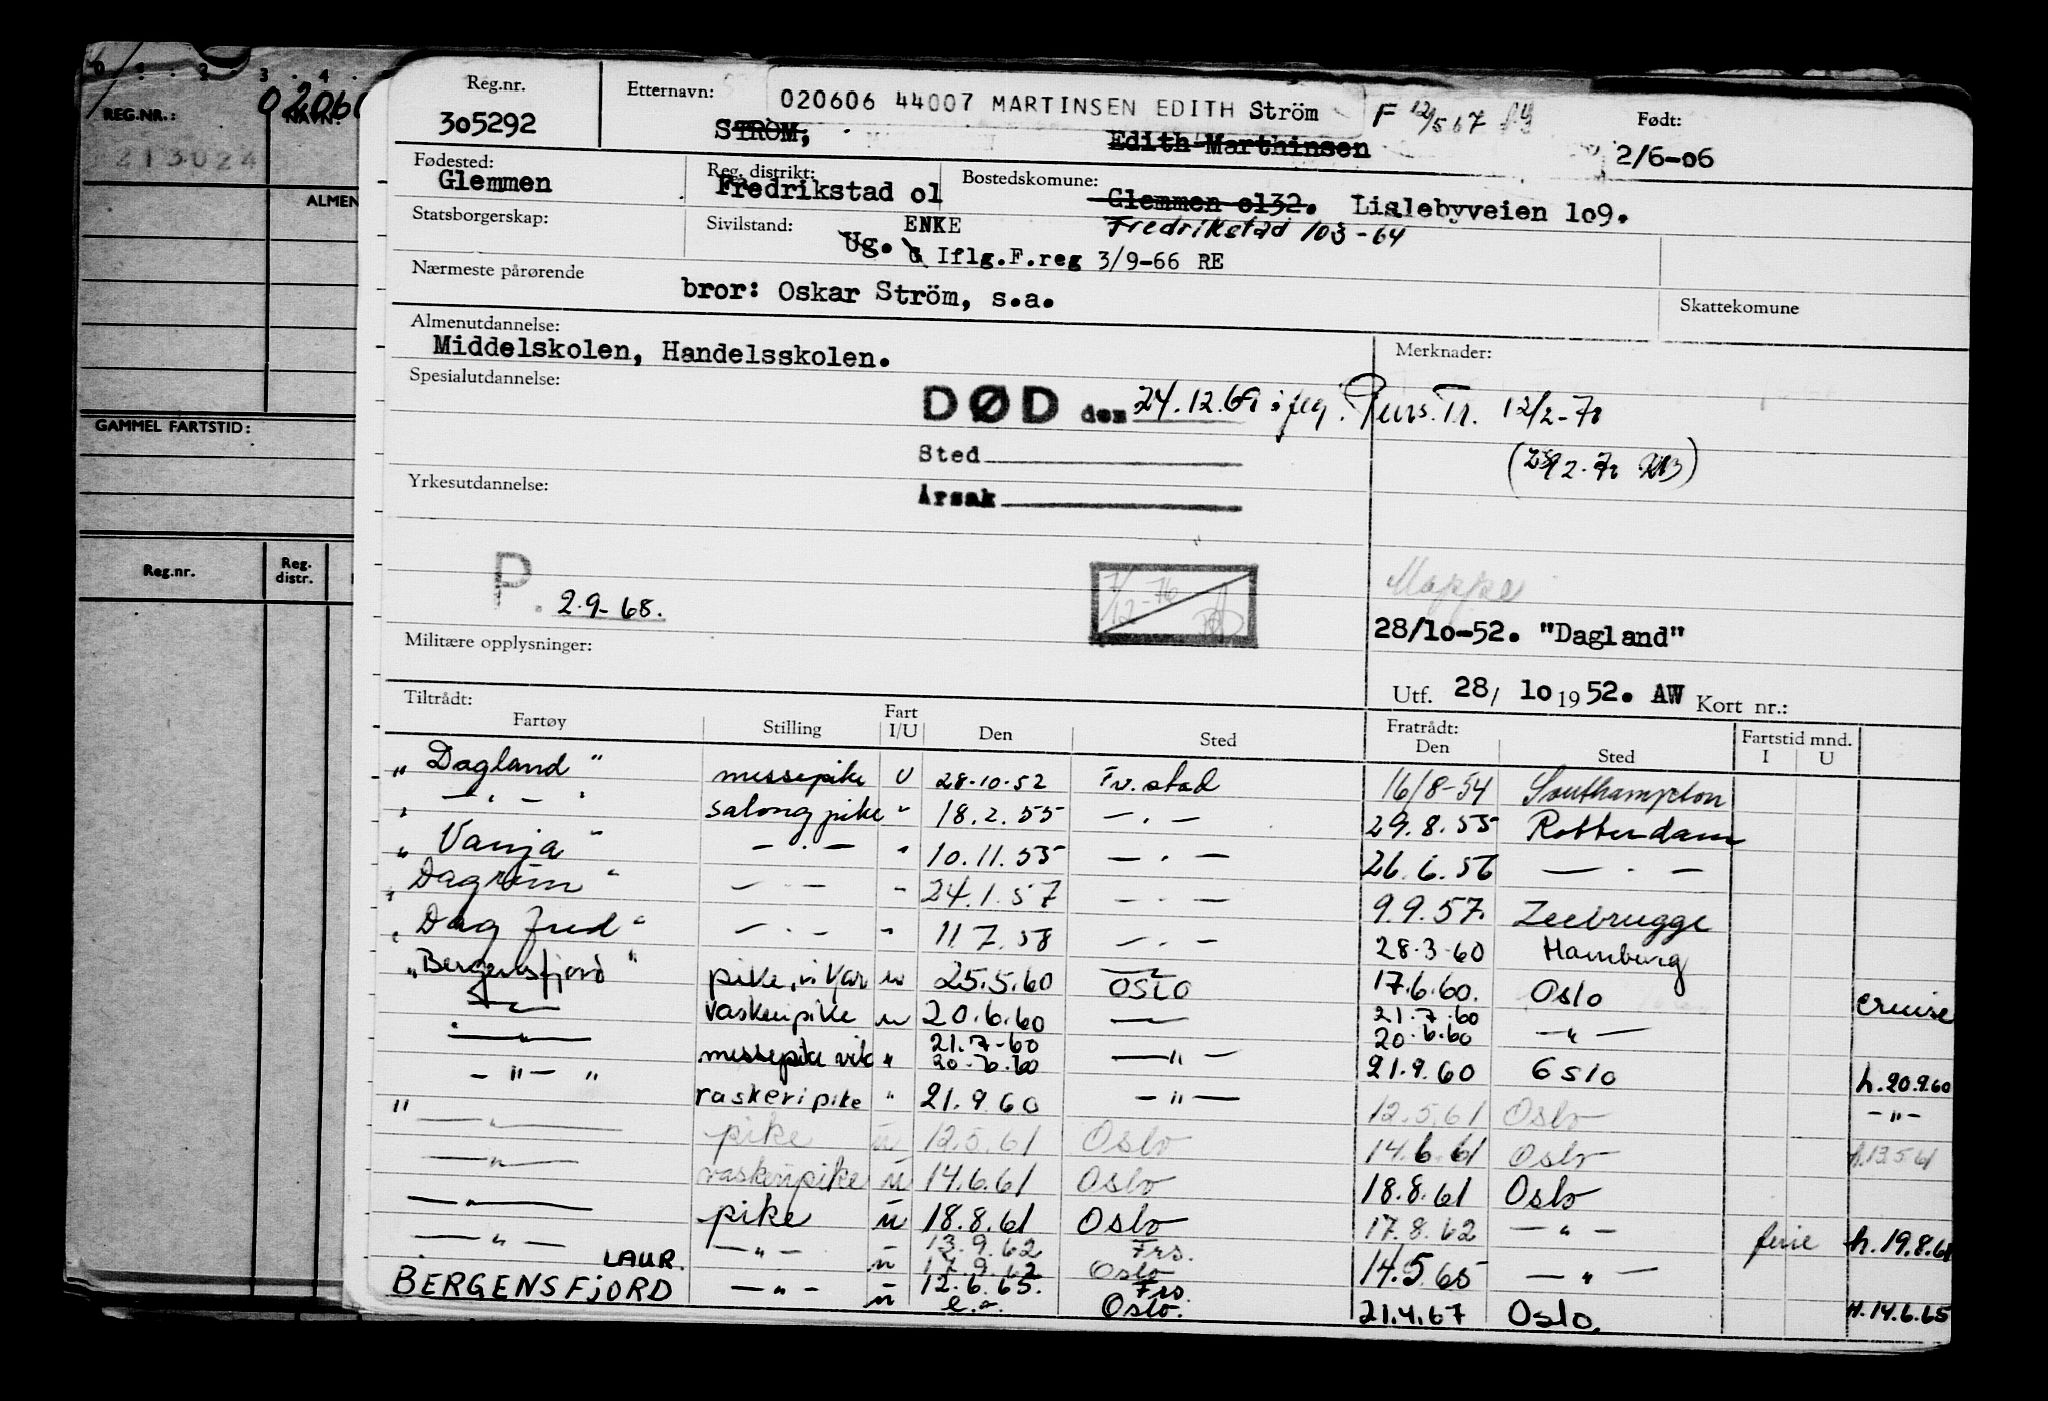 1 . 2 . 3 . 4 .
REG.NR.: 02060 NAVN:
213024
ALMEN
GAMMEL FARTSTID:
Reg.nr. Reg. distr.
Reg.nr. Etternavn: 020606 44007 MARTINSEN EDITH Ström F 12/5 67 Født:
305292 STRÖM, Edith Marthinsen 2/6-06
Fødested: Reg. distrikt: Bostedskomune:
Glemmen Fredrikstad o1 Glemmen o132. Lislebyveien 1o9.
Statsborgerskap: Sivilstand: ENKE Fredrikstad 103-64
Ug. G Iflg.F.reg 3/9-66 RE
Nærmeste pårørende
bror: Oskar Ström, s.a. Skattekomune
Almenutdannelse: Merknader:
Middelskolen, Handelsskolen.
Spesialutdannelse:
DØD den 24.12.69 iflg. Pens.Tr. 12/2-70
Sted
Yrkesutdannelse: Årsak
P. 2.9-68. 7/12-76 Mappe
28/1o-52. "Dagland"
Militære opplysninger:
Utf. 28/ 1o 1952. AW Kort nr.:
Tiltrådt: Fratrådt: Fartstid mnd.
Fartøy Stilling Fart I/U Den Sted Den Sted I U
"Dagland" messepike U 28.10.52 Fr.stad 16/8-54 Southampton
" — " — " salongpike " 18.2.55 — " — 29.8.55 Rotterdam
"Vanja" — " — " 10.11.55 — " — 26.6.56 — " —
"Dagröm" — " — " 24.1.57 — " — 9.9.57. Zeebrugge
"Dag Fred" — " — " 11.7.58 — " — 28.3.60 Hamburg
"Bergensfjord" pike, vikar u 25.5.60 OSLO 17.6.60. Oslo cruise
— " — vaskeripike u 20.6.60 — " — 21.7.60
— " — 21.7-60 20.6.60 — " —
messepike vik " 20.6.60 — " — 21.9.60 Oslo h.20.9.60
— " — " vaskeripike " 21.9.60 — " — 12.5.61 Oslo — " —
" — " — pike u 12.5.61 Oslo 14.6.61 Oslo h.13.5.61
— " — vaskeripike u 14.6.61 Oslo 18.8.61 Oslo
— " — pike u 18.8.61 Oslo 17.8.62 — " — ferie h.19.8.61
— " — — " — u 13.9.62 Frs. 17.9.62 Oslo 14.5.65 — " —
LAUR.
BERGENSFJORD — " — u 12.6.65. Frs. e.a. Oslo. 21.4.67 Oslo. H.14.6.65